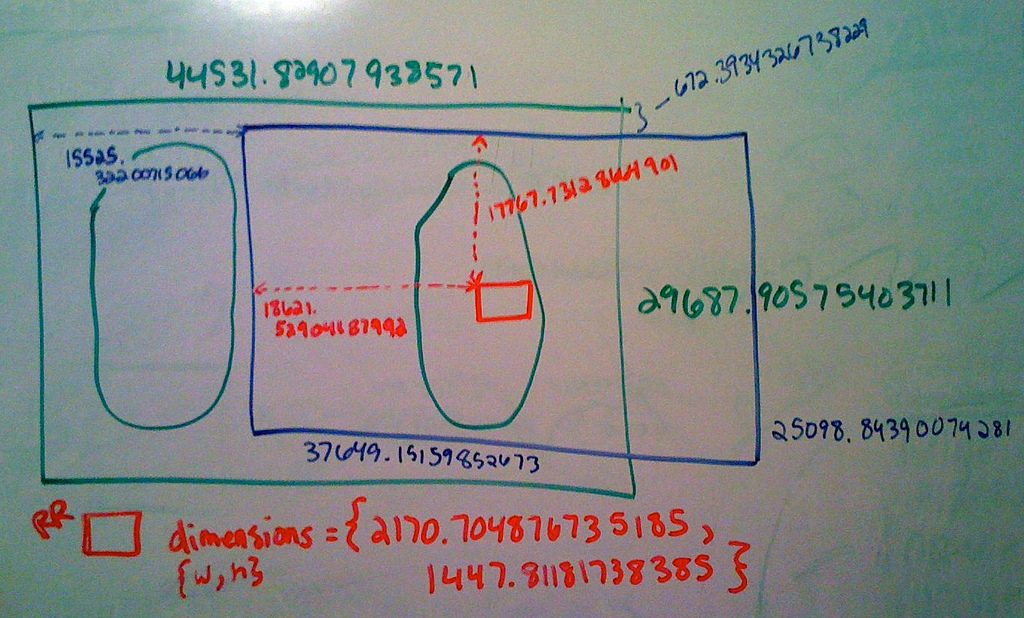 44531.82907938571
672.3934326738229
15525.
32200715066
17767.73128664901
29687.90575403711
18621.
52904687992
25098.84390074281
37649.15159852673
RR dimensions = {2170.704876735185,
{w,h} 1447.81181738385}